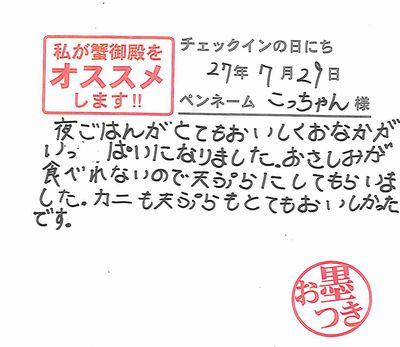 私が蟹御殿を
オススメ
します!!
チェックインの日にち
27年7月29日
ペンネーム こっちゃん 様
夜ごはんがとてもおいしくおなかが
いっ ぱいになりました。おさしみが
食べれないので天ぷらにしてもらいま
した。カニも天ぷらもとてもおいしかった
です。
お墨つき